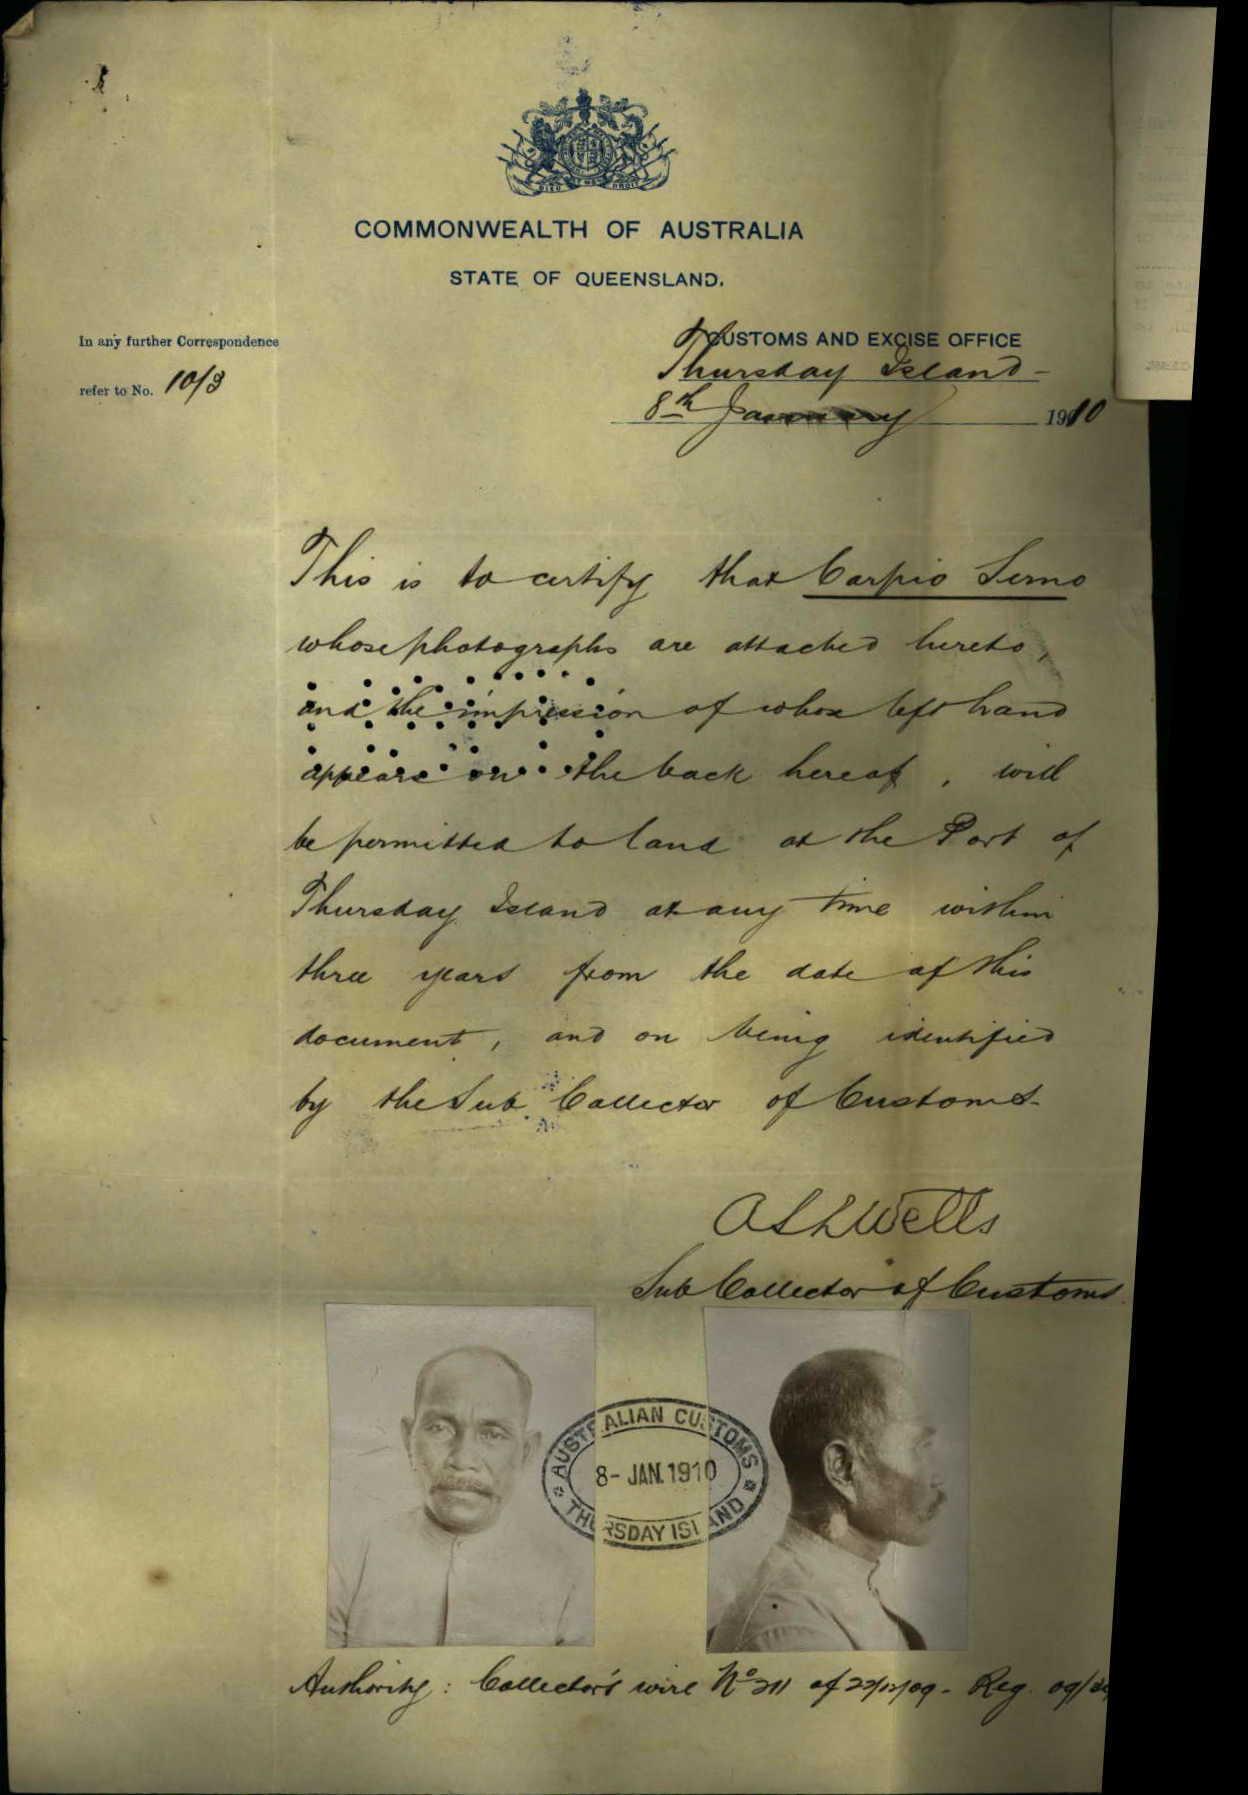 COMMONWEALTH OF AUSTRALIA
STATE OF QUEENSLAND.
In any further Correspondence
refer to No. 10/3
CUSTOMS AND EXCISE OFFICE
Thursday Island
8th January 1910
This is to certify that Carpio Serno
whose photographs are attached hereto,
and the impression of whose left hand
appears on the back hereof, will
be permitted to land at the Port of
Thursday Island at any time within
three years from the date of this
document, and on being identified
by the Sub Collector of Customs
Wells
Sub Collector of Customs
AUSTRALIAN CUSTOMS
8-JAN.1910
THURSDAY ISLAND
Authority: Collector's wire No 311 of 22/12/09 - Reg. 09/